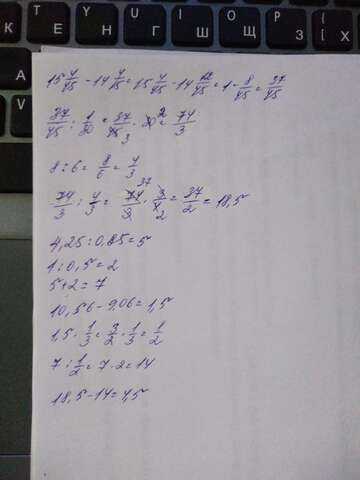 15 4/45 - 14 4/15 = 15 4/45 - 14 12/45 = 1 - 8/45 = 37/45
37/45 : 1/30 = 37/45 · 30 = 74/3
8 : 6 = 8/6 = 4/3
74/3 : 4/3 = 74/3 · 3/4 = 37/2 = 18,5
4,25 : 0,85 = 5
1 : 0,5 = 2
5 + 2 = 7
10,56 - 9,06 = 1,5
1,5 · 1/3 = 3/2 · 1/3 = 1/2
7 : 1/2 = 7 · 2 = 14
18,5 - 14 = 4,5